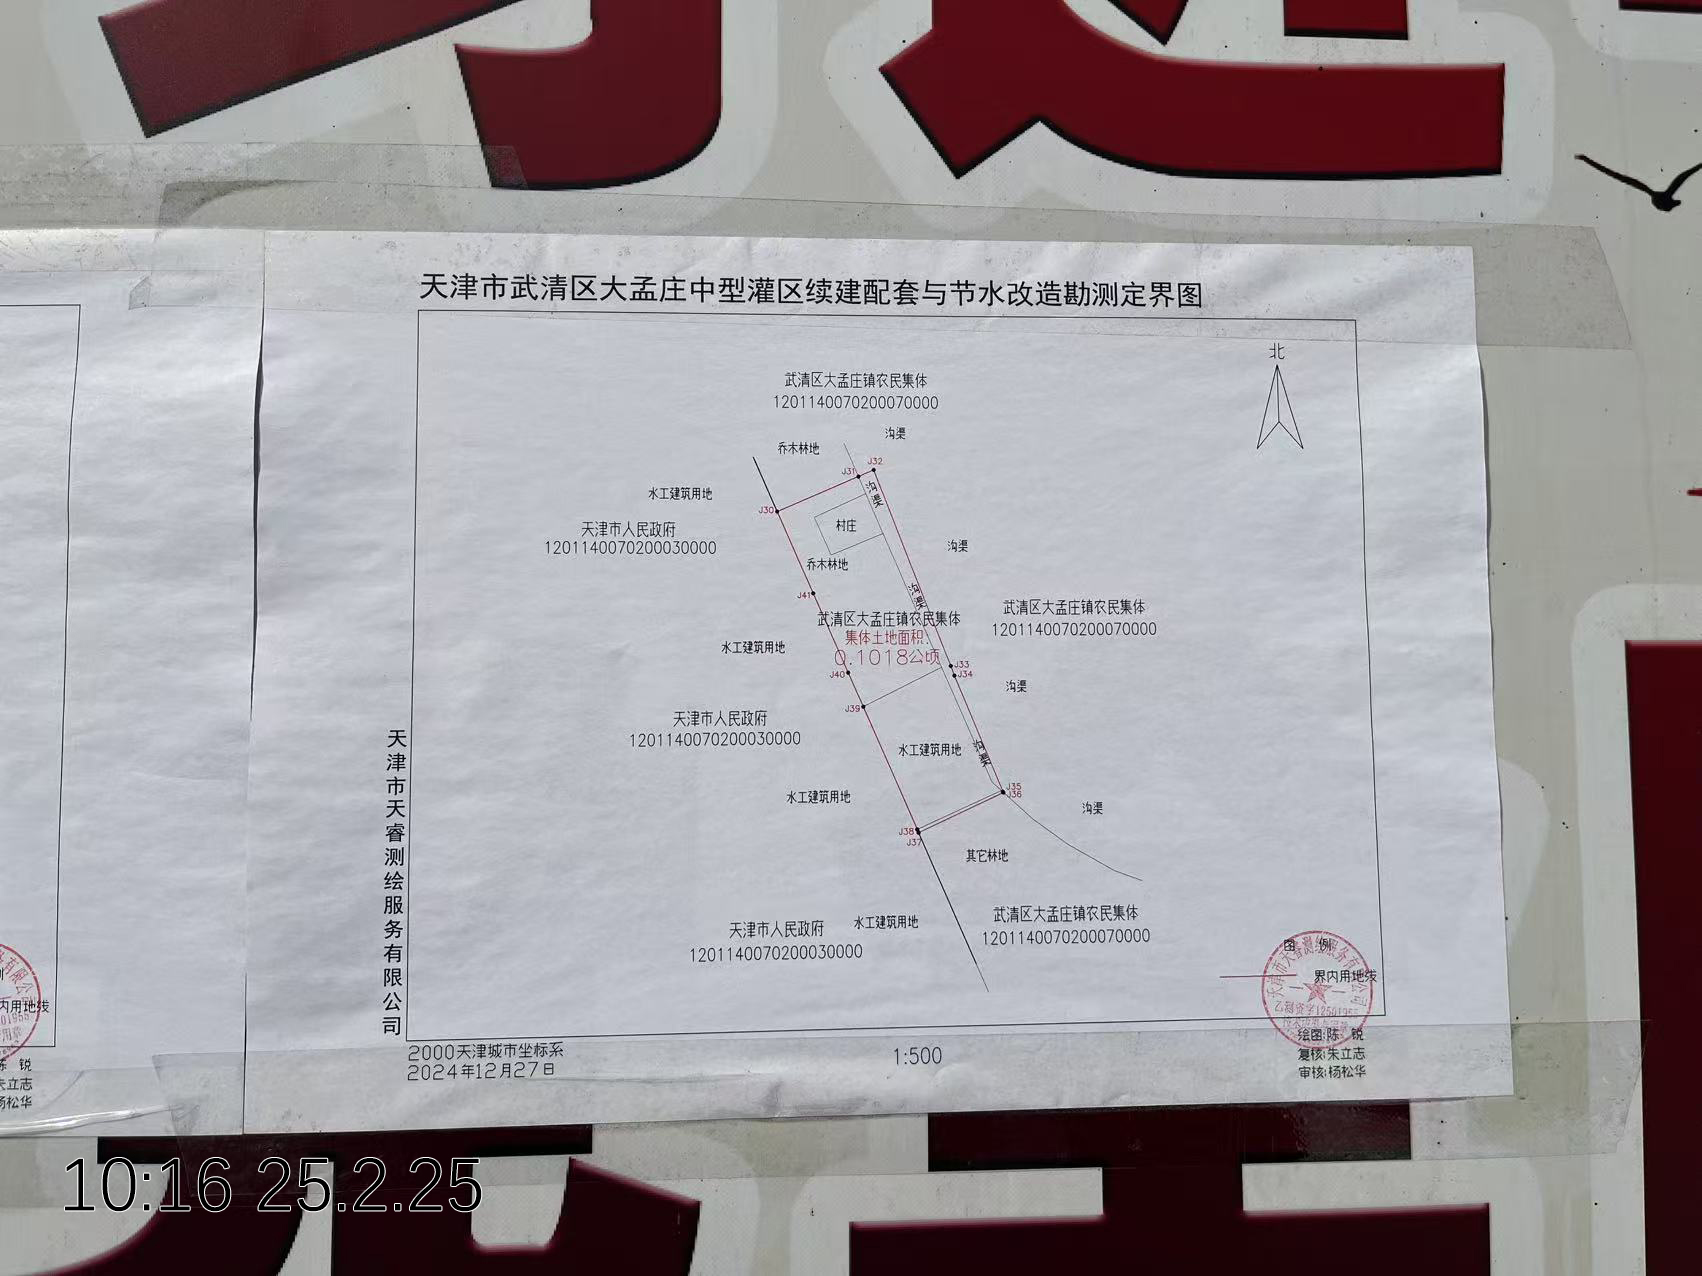 天津市武清区大孟庄中型灌区续建配套与节水改造勘测定界图
北
武清区大孟庄镇农民集体
1201140070200070000
沟渠
乔木林地
J31
J32
沟渠
水工建筑用地
J30
村庄
天津市人民政府
1201140070200030000
沟渠
乔木林地
J41
沟渠
武清区大孟庄镇农民集体
1201140070200070000
武清区大孟庄镇农民集体
集体土地面积:
0.1018公顷
水工建筑用地
J33
J34
J40
沟渠
J39
天津市人民政府
1201140070200030000
水工建筑用地
沟渠
J35
J36
水工建筑用地
沟渠
J38
J37
其它林地
武清区大孟庄镇农民集体
1201140070200070000
水工建筑用地
天津市人民政府
1201140070200030000
天津市天睿测绘服务有限公司
图 例
界内用地线
天津市天睿测绘服务有限公司
绘图:陈 锐
复核:朱立志
审核:杨松华
2000天津城市坐标系
2024年12月27日
1:500
内用地线
陈 锐
朱立志
杨松华
10:16 25.2.25